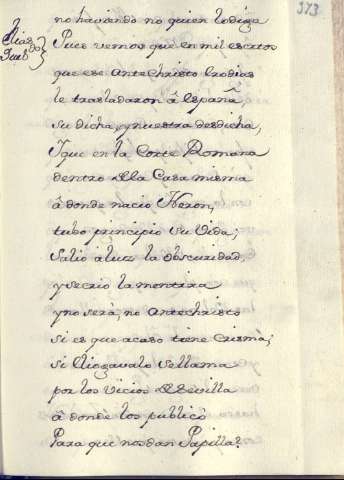 373
no haviendo no quien lo diga
Elias do
Pues vemos que en mil escritos
que ese Ante Christo Erodias
le trasladaron â España
su dicha, y nuestra desdicha,
Y que en la Corte Romana
dentro de la Casa misma
â donde nacio Neron,
tubo principio su Vida;
Salio â luz la obscuridad,
y se crio la mentira
y no serà, no Antechristo
si es que acaso tiene Crisma;
si se llama
por los vicios de Sevilla
â donde los publicò
Para que nos dan Papilla?